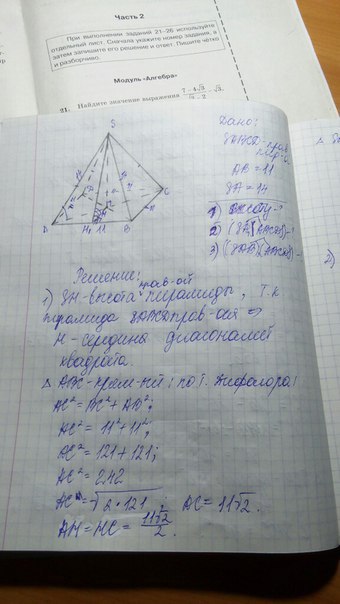 Часть 2
При выполнении заданий 21–26 используйте
отдельный лист. Сначала укажите номер задания, а
затем запишите его решение и ответ. Пишите чётко
и разборчиво.
Модуль «Алгебра»
21. Найдите значение выражения
Дано:
SABCD - прав.
пир-а
AB = 11
SA = 14
1) Высоту - ?
2) (SA; (ABCD)) - ?
3)
S
D
H
11
B
C
Решение:
прав-ой
1) SH - высота пирамиды, т.к
пирамида SABCD прав-ая ⇒
H - середина диагоналей
квадрата.
Δ ADC - прям-ый; по т. Пифагора:
AC² = DC² + AD²;
AC² = 11² + 11²;
AC² = 121 + 121;
AC² = 242
AC = √2·121 AC = 11√2.
AH = HC = 11√2/2.